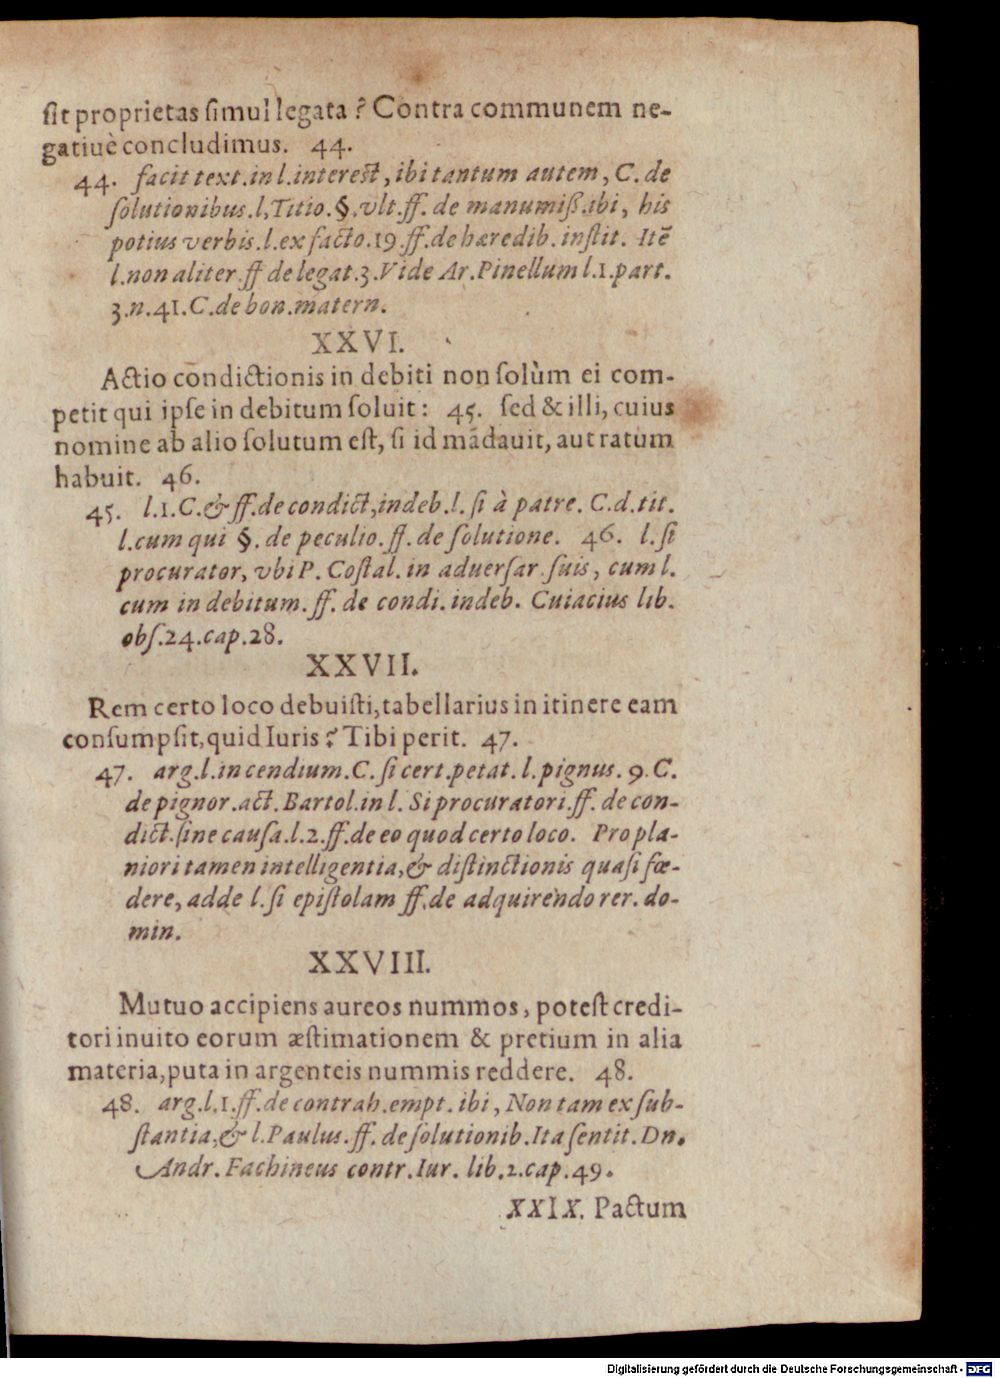 ſit proprietas ſimul legata? Contra communem ne-
gatiuè concludimus. 44.
44. facit text. in l. intereſt, ibi tantum autem, C. de
ſolutionibus. l, Titio. §. vlt. ff. de manumiß. ibi, his
potius verbis. l. ex facto. 19. ff. de hæredib. inſtit. Itẽ
l. non aliter. ff de legat. 3. Vide Ar. Pinellum l. 1. part.
3. n. 41. C. de bon. matern.
XXVI.
Actio condictionis in debiti non ſolùm ei com-
petit qui ipſe in debitum ſoluit: 45. ſed & illi, cuius
nomine ab alio ſolutum eſt, ſi id mãdauit, aut ratum
habuit. 46.
45. l. 1. C. & ff. de condict, indeb. l. ſi à patre. C. d. tit.
l. cum qui §. de peculio. ff. de ſolutione. 46. l. ſi
procurator, vbi P. Coſtal. in aduerſar. ſuis, cum l.
cum in debitum. ff. de condi. indeb. Cuiacius lib.
obſ. 24. cap. 28.
XXVII.
Rem certo loco debuiſti, tabellarius in itinere eam
conſumpſit, quid Iuris? Tibi perit. 47.
47. arg. l. incendium. C. ſi cert. petat. l. pignus. 9. C.
de pignor. act. Bartol. in l. Si procuratori. ff. de con-
dict. ſine cauſa. l. 2. ff. de eo quod certo loco. Pro pla-
niori tamen intelligentia, & diſtinctionis quaſi fœ-
dere, adde l. ſi epiſtolam ff. de adquirendo rer. do-
min.
XXVIII.
Mutuo accipiens aureos nummos, poteſt credi-
tori inuito eorum æſtimationem & pretium in alia
materia, puta in argenteis nummis reddere. 48.
48. arg. l. 1. ff. de contrah. empt. ibi, Non tam ex ſub-
ſtantia, & l. Paulus. ff. de ſolutionib. Ita ſentit. Dn.
Andr. Fachineus contr. Iur. lib. 2. cap. 49.
XXIX. Pactum
Digitalisierung gefördert durch die Deutsche Forschungsgemeinschaft - DFG